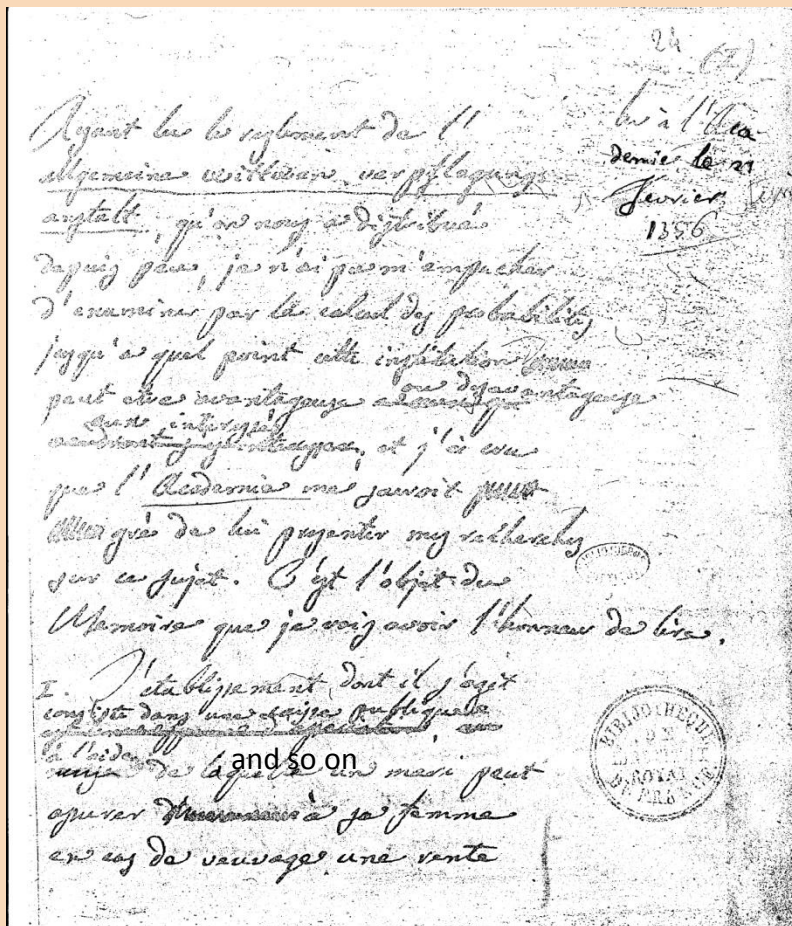 24 (I)
Ayant lu le reglement de l'
allgemeine wittwen verpflegungs
anstalt, qu'on nous a distribué
depuis peu, je n'ai pas m'empecher
d'examiner par le calcul des probabilités
jusqu'a quel point cette institution
peut etre avantageuse ou desavantageuse
aux interessés, et j'ai cru
que l'Academie me sauroit
gré de lui presenter mes recherches
sur ce sujet. C'est l'objet du
Memoire que je vais avoir l'honneur de lire.
lu à l'Aca
demie le 21
fevrier
I. L'etablissement dont il s'agit
consiste dans une caisse publique
à l'aide de laquelle un mari peut
assurer à sa femme
en cas de veuvage une rente
and so on
BIBLIOTHEQUE
ROYALE